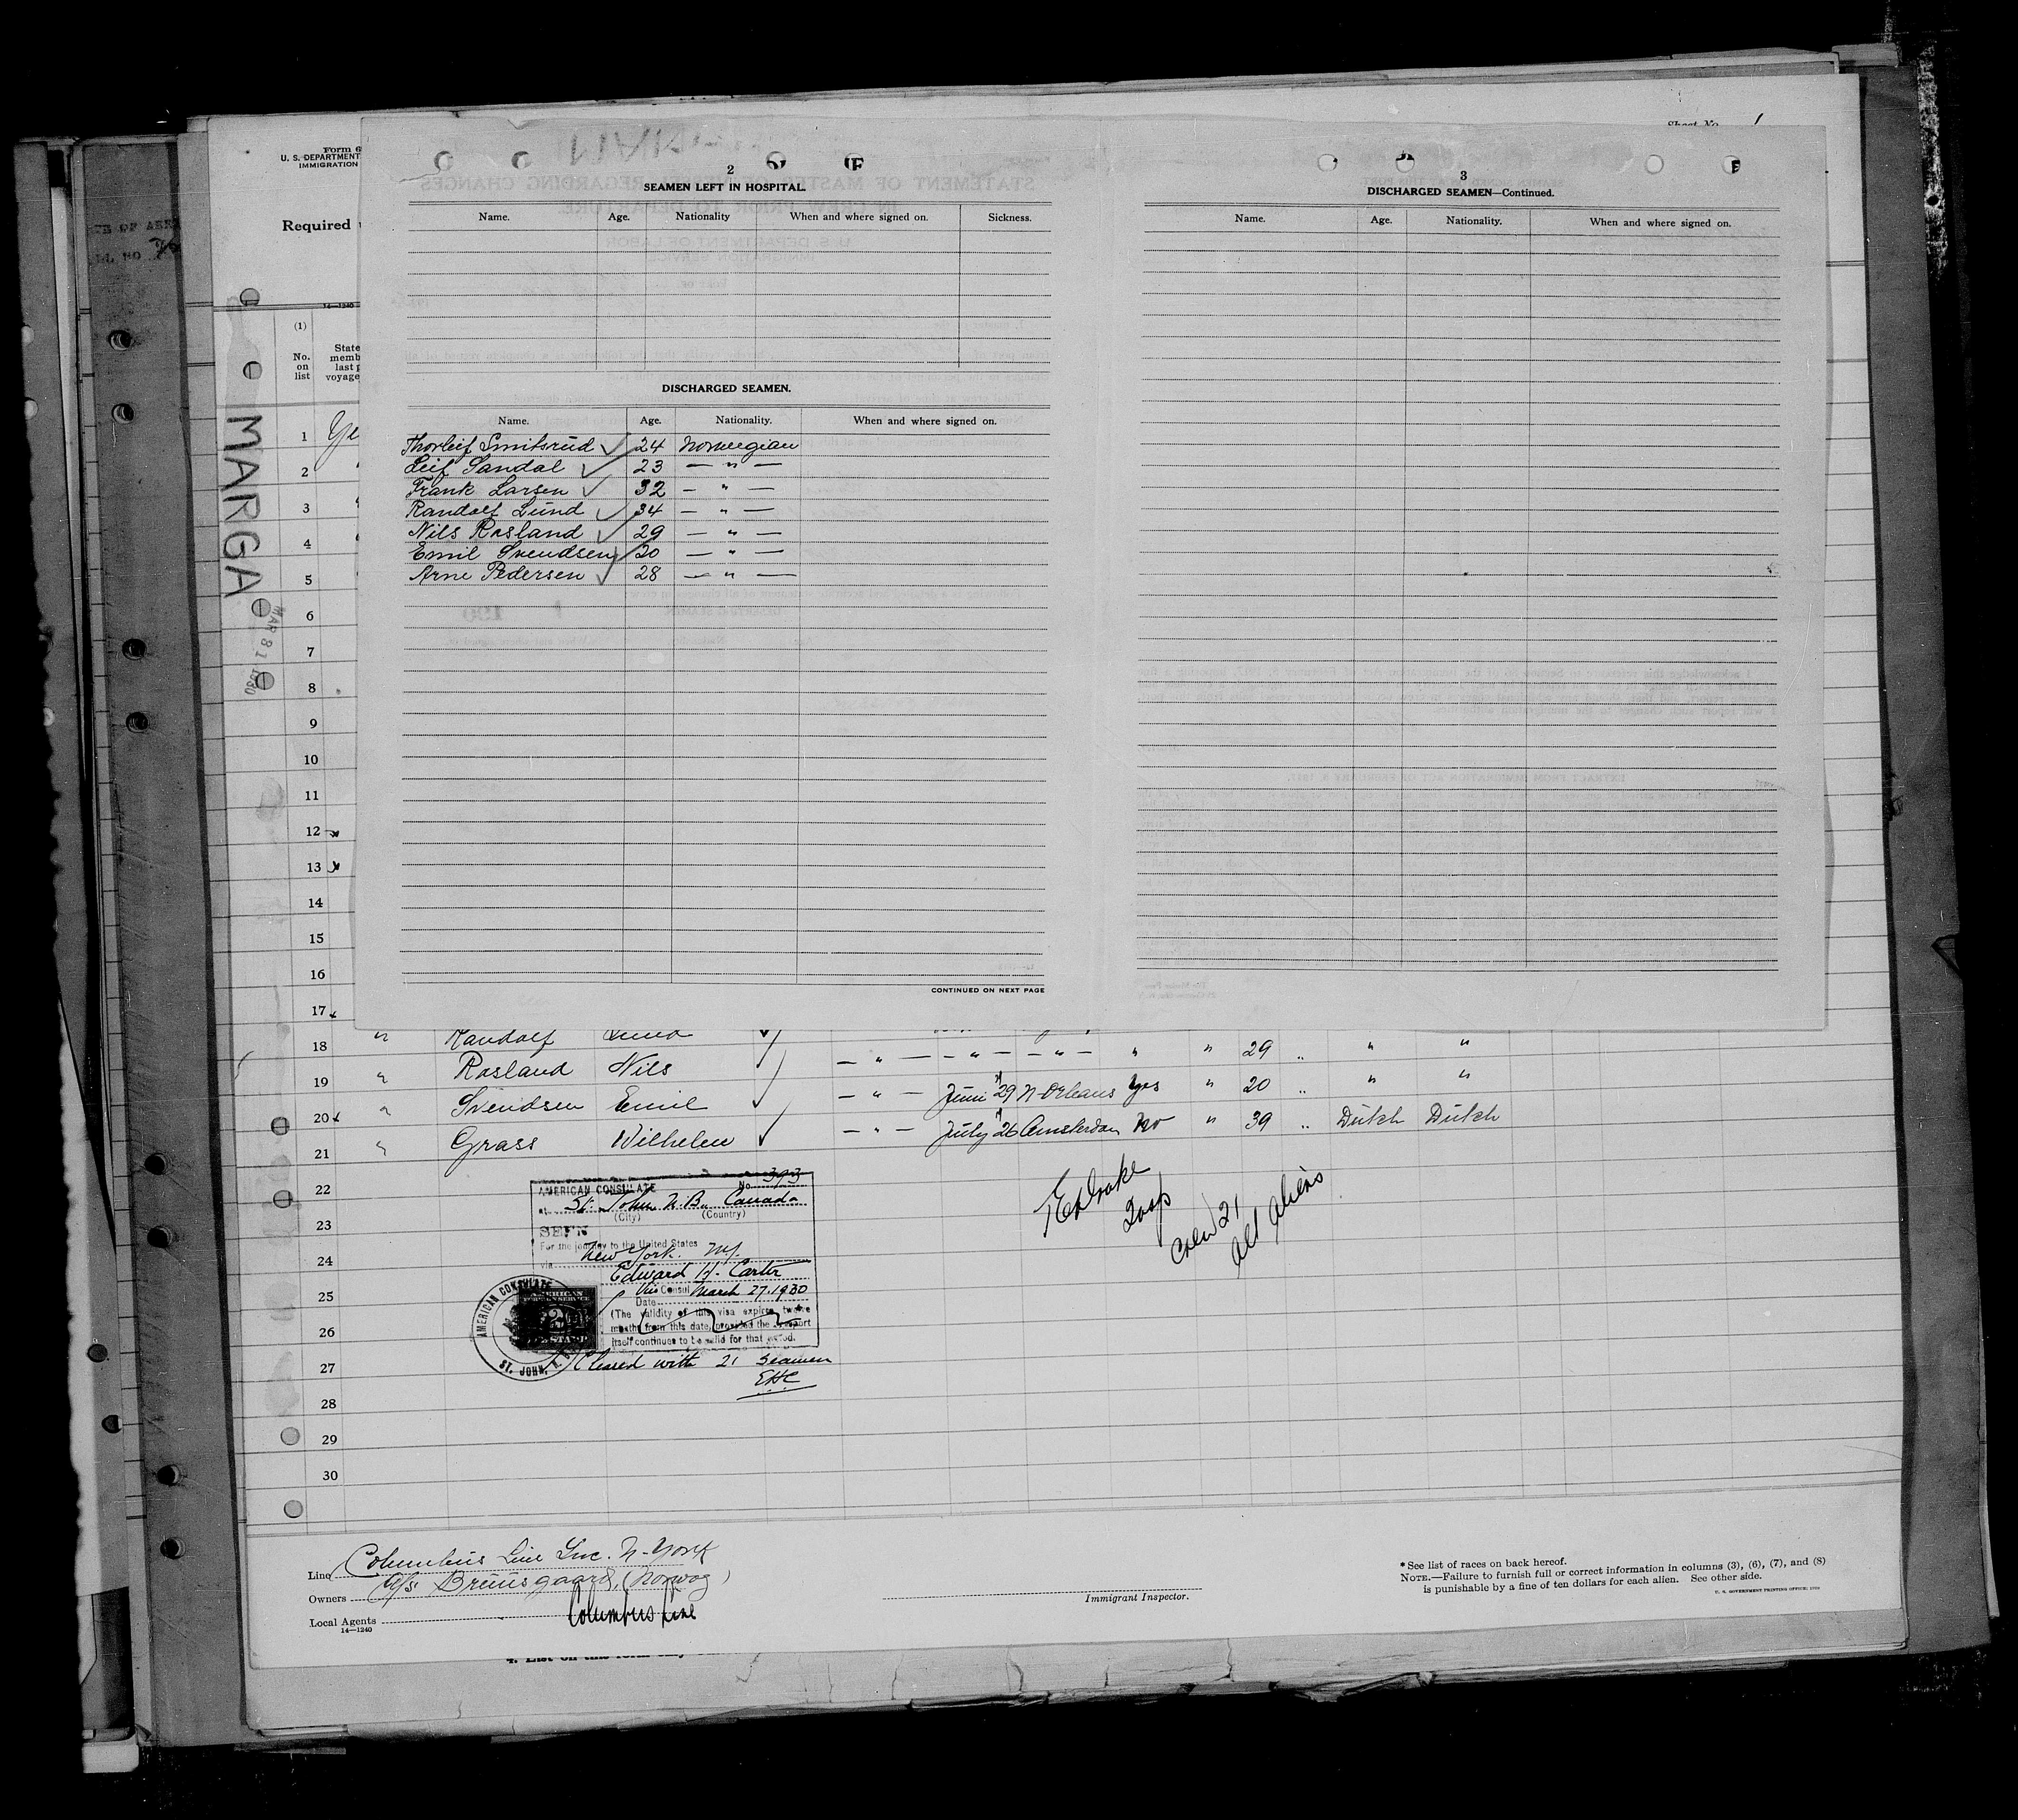 Sheet No. 1
Form 6
U. S. DEPARTMENT
IMMIGRATION
Required
14—1240
(1)
No. on list
State
memb
last p
voyage
MARGA
MAR 31 1930
2
SEAMEN LEFT IN HOSPITAL.
Name. Age. Nationality When and where signed on. Sickness.
DISCHARGED SEAMEN.
Name. Age. Nationality. When and where signed on.
Thorleif Smitsrud 24 Norwegian
Leif Sandal 23 — " —
Frank Larsen 32 — " —
Randolf Lund 34 — " —
Nils Rosland 29 — " —
Emil Svendsen 20 — " —
Arne Pedersen 28 — " —
CONTINUED ON NEXT PAGE
3
DISCHARGED SEAMEN—Continued.
Name. Age. Nationality. When and where signed on.
1 Ye
2
3
4
5
6
7
8
9
10
11
12
13
14
15
16
17
18 " Randolf Lund
19 " Rosland Nils — " — — " — — " — " " 29 " " "
20 " Svendsen Emil — " — Juni 29 N-Orleans Yes " 20 " " "
21 " Grass Wilhelm — " — July 26 Amsterdam No " 39 " Dutch Dutch
22
23
24
25
26
27
28
29
30
AMERICAN CONSULATE No. 393
at St. John N.B. Canada
(City) (Country)
SEEN
For the journey to the United States
via New York. N.Y.
Edward H. Carter
Vice Consul
Date March 27, 1930
(The validity of this visa expires twelve
months from this date, provided the passport
itself continues to be valid for that period.
AMERICAN CONSULATE
ST. JOHN, N.B.
Cleared with 21 Seamen
EHC
Crew 21
All Aliens
Line Columbus Line Inc. N-York
Owners A/S Bruusgaard, (Norway)
Local Agents Columbus Line
14—1240
Immigrant Inspector.
*See list of races on back hereof.
NOTE.—Failure to furnish full or correct information in columns (3), (6), (7), and (8)
is punishable by a fine of ten dollars for each alien. See other side.
U. S. GOVERNMENT PRINTING OFFICE
4. List on this form only